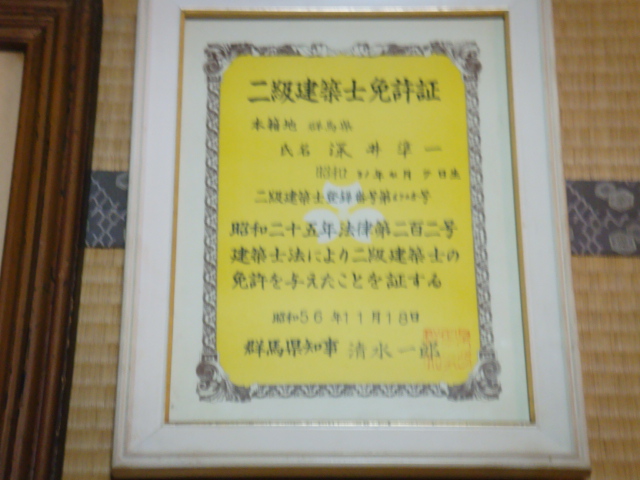 二級建築士免許証
本籍地 群馬県
氏名 深井準一
昭和 年 月 日生
二級建築士登録番号第 号
昭和二十五年法律第二百二号
建築士法により二級建築士の
免許を与えたことを証する
昭和56年11月18日
群馬県知事 清水一郎